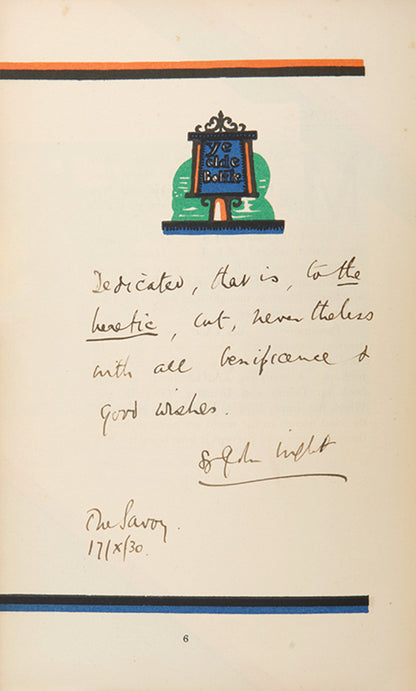 ye
olde
Dedicated, that is, to the
heretic, but, nevertheless
with all benificence &
good wishes.
John
The Savoy.
17/X/30.
6